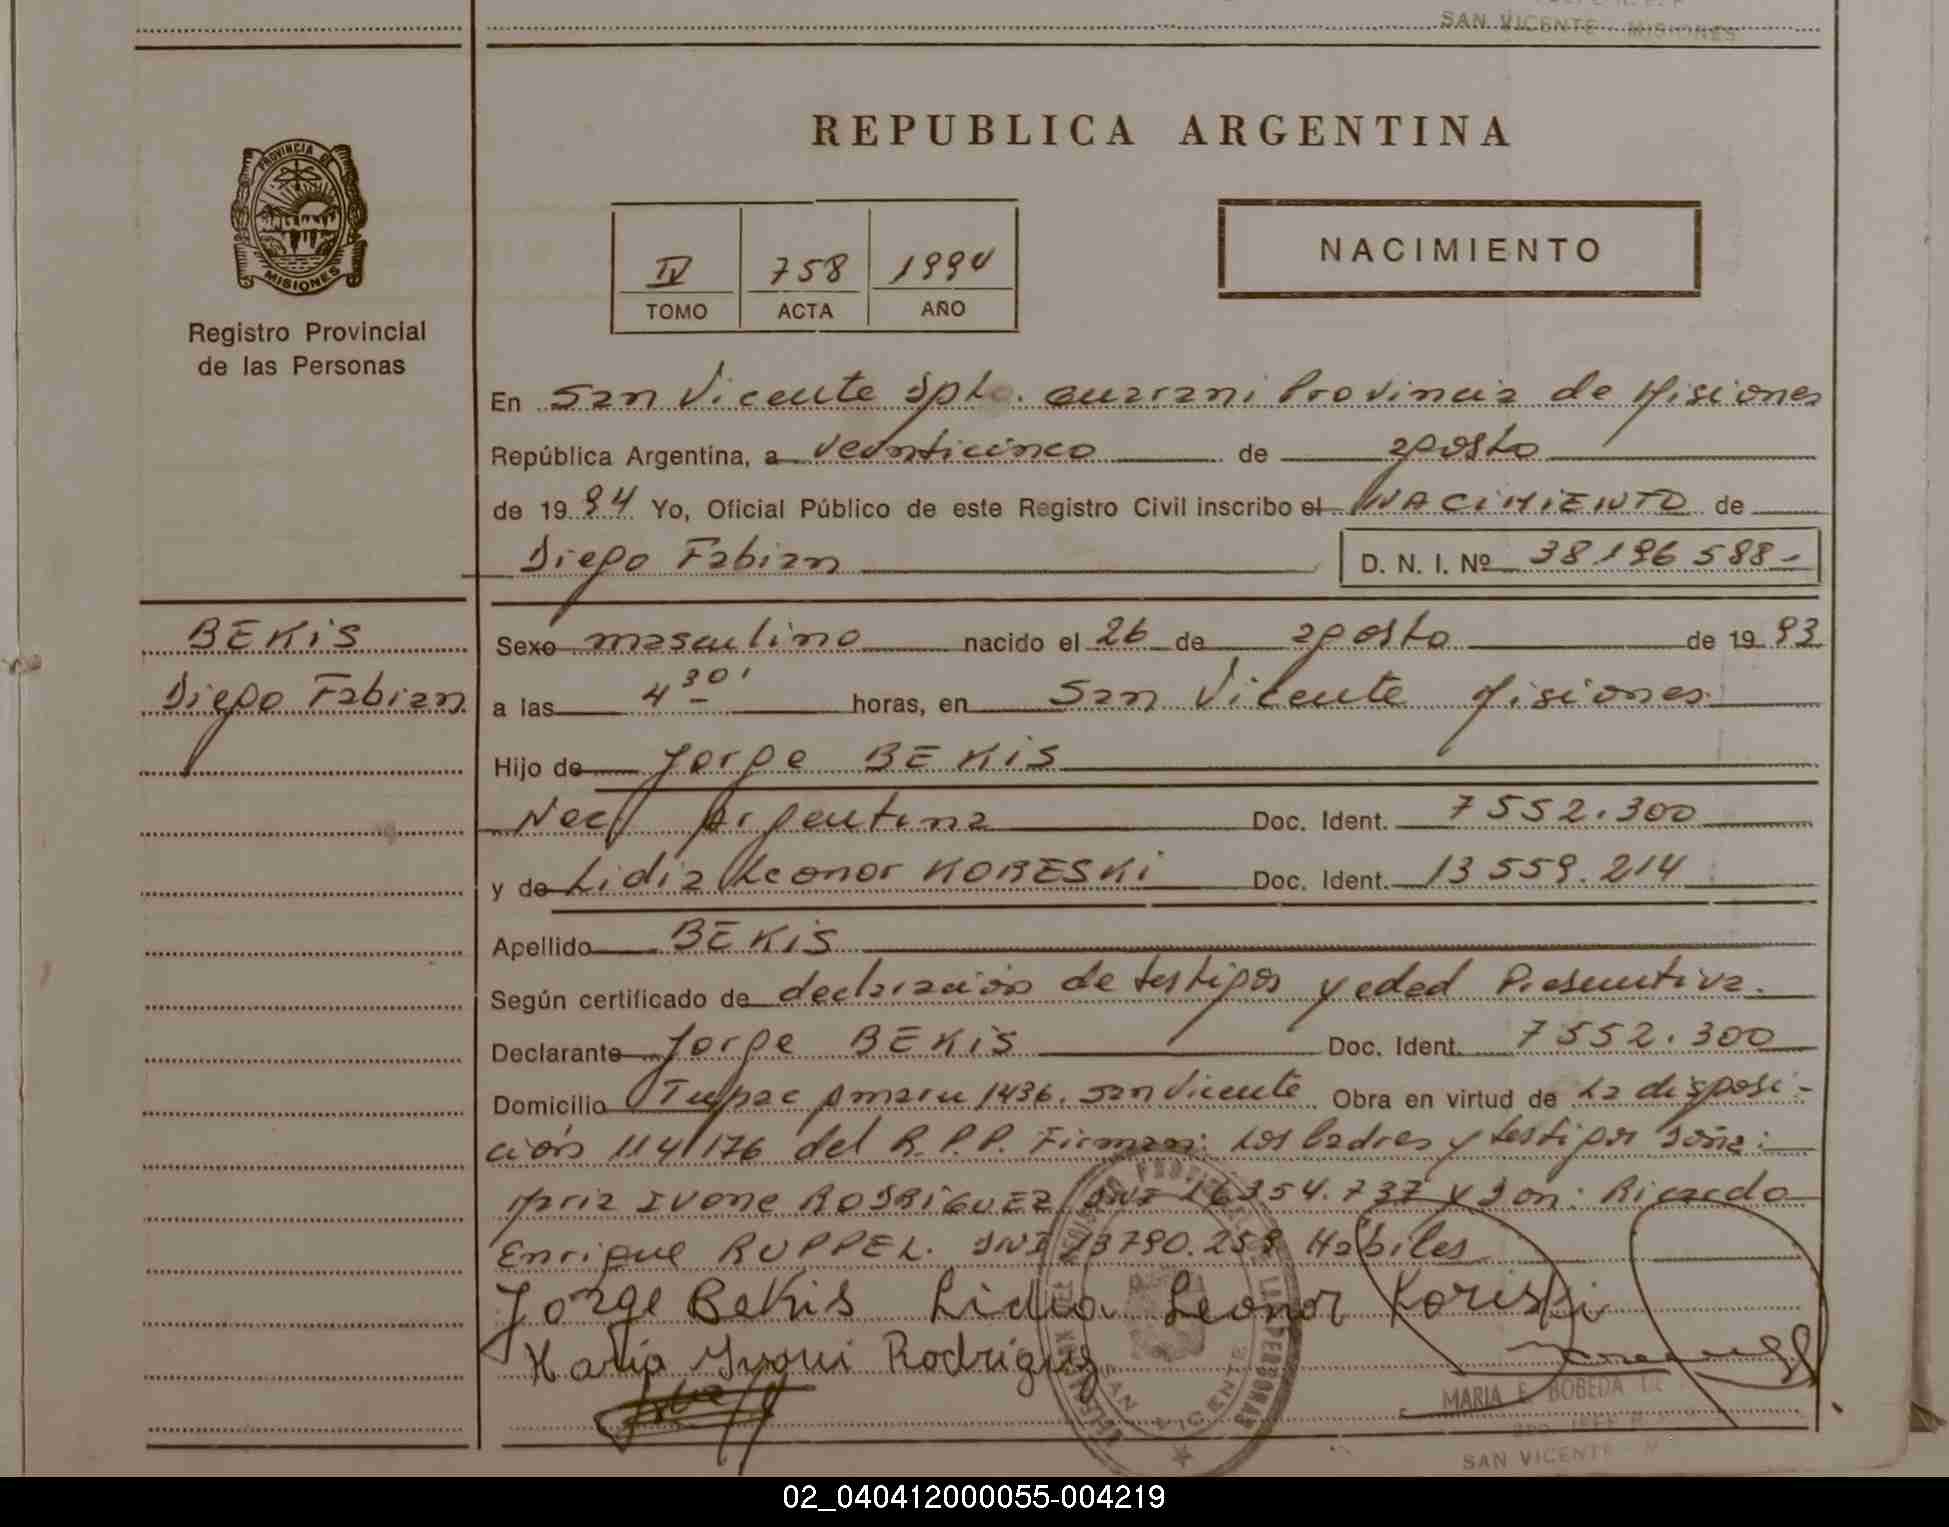 SAN VICENTE - MISIONES
REPUBLICA ARGENTINA
PROVINCIA DE
MISIONES
Registro Provincial
de las Personas
IV 758 1994
TOMO ACTA AÑO
NACIMIENTO
En San Vicente Dpto. Guarani Provincia de Misiones
República Argentina, a veinticinco de agosto
de 1994 Yo, Oficial Público de este Registro Civil inscribo el NACIMIENTO de
Diego Fabian D. N. I. Nº 38196588-
BEKIS
Diego Fabian
Sexo masculino nacido el 26 de agosto de 1993
a las 4 30' horas, en San Vicente Misiones
Hijo de Jorge BEKIS
Nac Argentina Doc. Ident. 7552.300
y de Lidia Leonor KORESKI Doc. Ident. 13559.214
Apellido BEKIS
Según certificado de declaración de testigos y edad Presuntiva.
Declarante Jorge BEKIS Doc. Ident. 7552.300
Domicilio Tupac Amaru 1436. San Vicente Obra en virtud de La disposi-
ción 114/176 del R.P.P. Firman: Los Padres y testigos Doña:
Maria IVONE RODRIGUEZ DNI 16354.737 y Don: Ricardo
Enrique RUPPEL. DNI Habiles
Jorge Bekis Lidia Leonor Koriski
Maria Rodriguez
SAN VICENTE
MARIA E. BOBEDA DE
SAN VICENTE - M
02_040412000055-004219